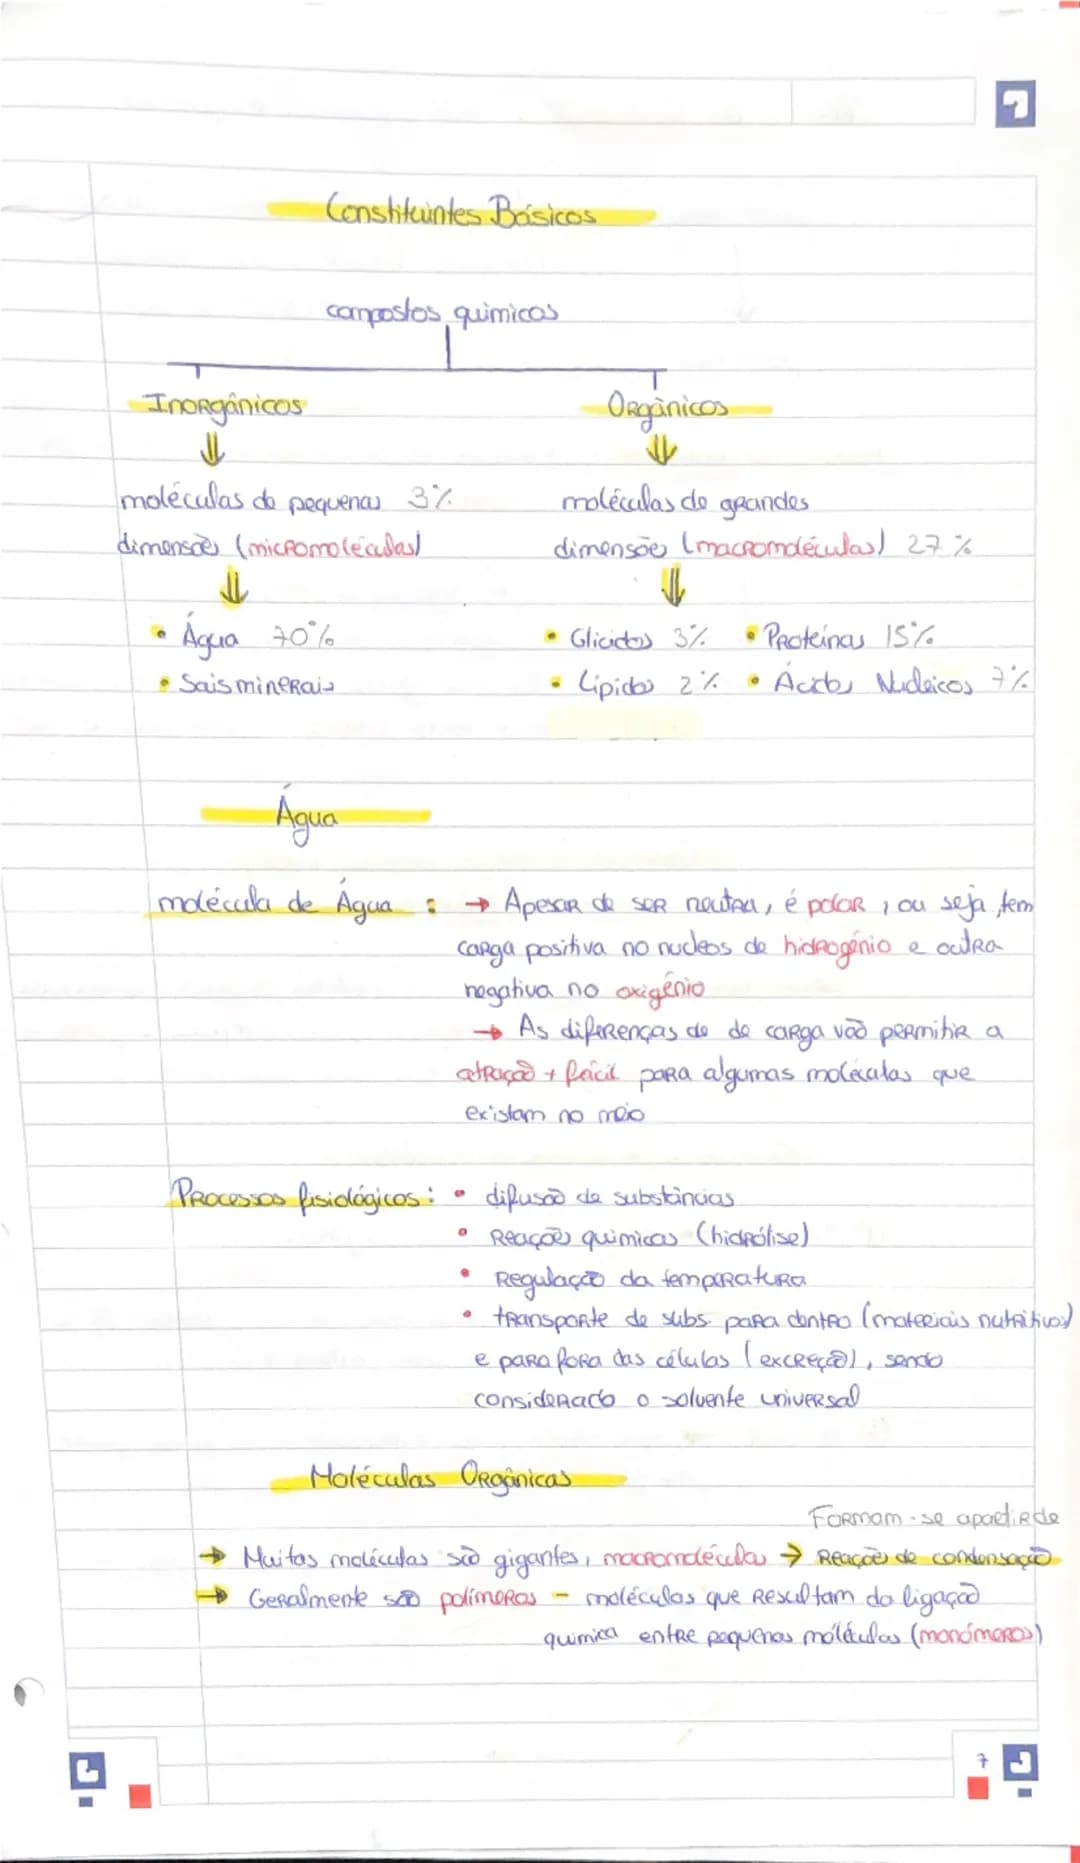 Constituintes Básicos
compostos químicos
Inorgânicos
Orgânicos
moléculas de pequenas 3%
dimensões (micromoléculas)
moléculas de grandes
dimensões (macromoléculas) 27%
• Água 70%
• Sais minerais
• Glícidos 3% • Proteínas 15%
• Lípidos 2% • Ácidos Nucleicos 7%
Água
molécula de Água : → Apesar de ser neutra, é polar, ou seja, tem
carga positiva no nucleos de hidrogénio e outra
negativa no oxigénio
→ As diferenças de de carga vão permitir a
atração + fácil para algumas moléculas que
existam no meio
Processos fisiológicos: • difusão de substâncias
• Reações químicas (hidrólise)
• Regulação da temperatura
• transporte de subs. para dentro (materiais nutritivos)
e para fora das células (excreção), sendo
considerado o solvente universal
Moléculas Orgânicas
Formam-se apartir de
→ Muitas moléculas são gigantes, macromoléculas → Reações de condensação
→ Geralmente são polímeros - moléculas que resultam da ligação
química entre pequenas moléculas (monómeros)
7